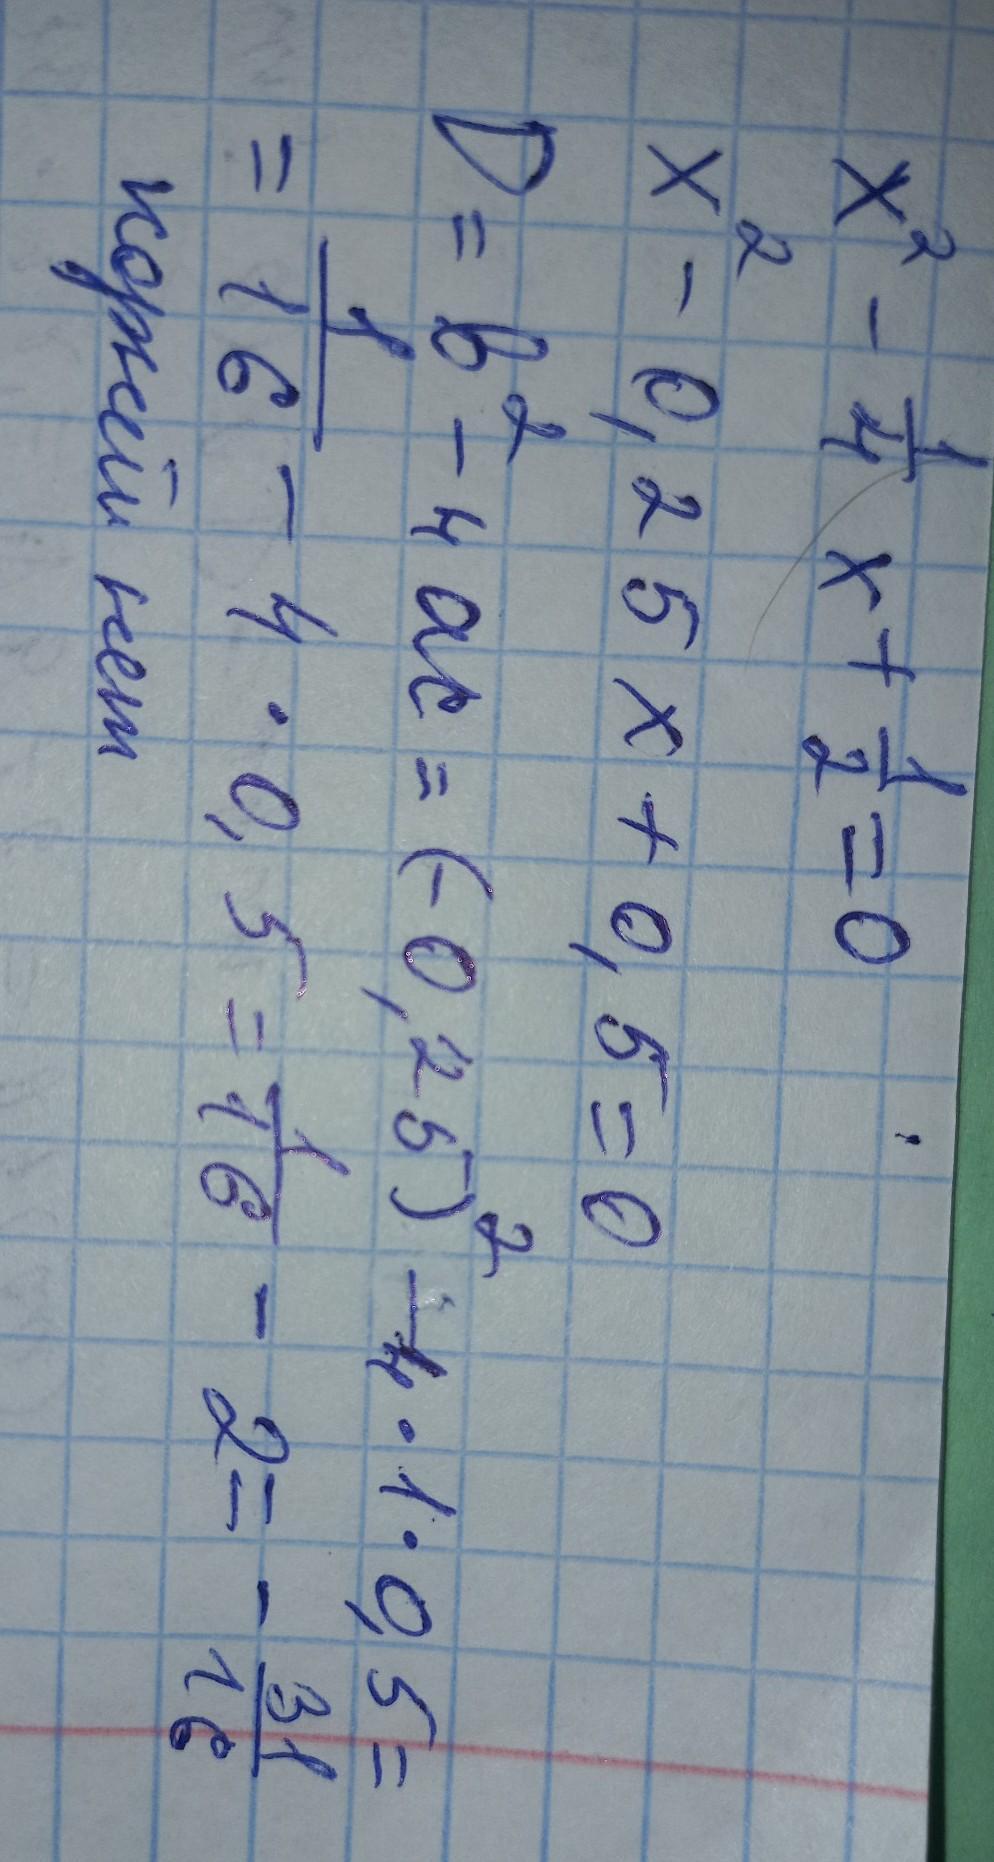 x² - 1/4 x + 1/2 = 0
x² - 0,25x + 0,5 = 0
D = b² - 4ac = (-0,25)² - 4·1·0,5 =
= 1/16 - 4·0,5 = 1/16 - 2 = - 31/16
корней нет